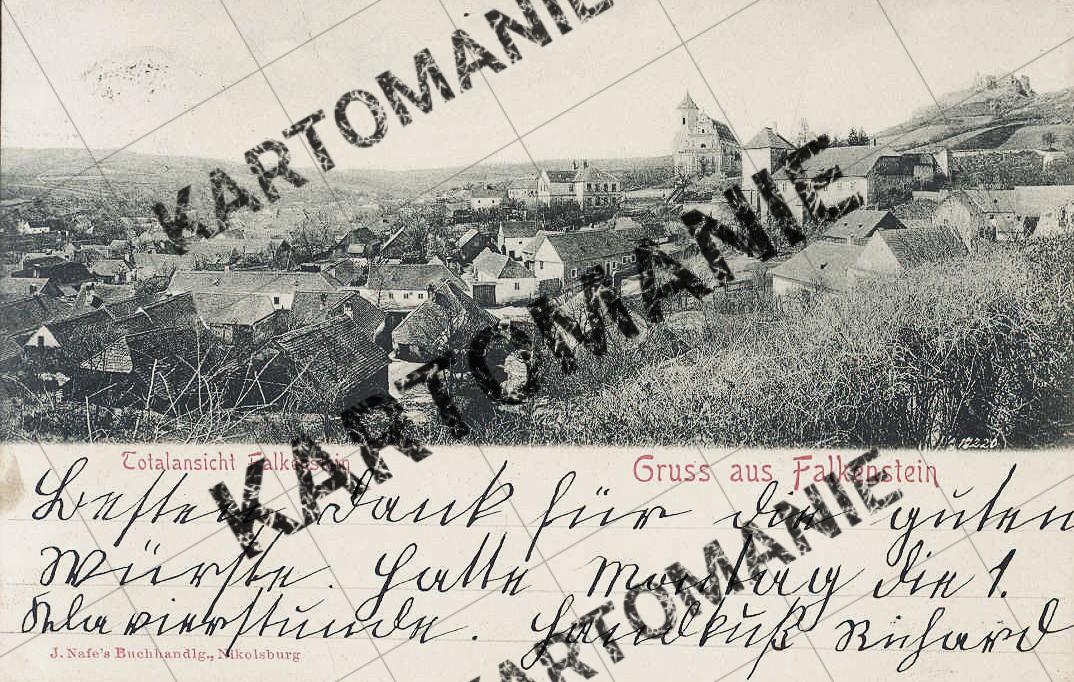 KARTOMANIE
KARTOMANIE
KARTOMANIE
№ 17220
Totalansicht Falkenstein
Gruss aus Falkenstein
Besten Dank für die guten
Würste. Hatte Montag die 1.
Klavierstunde. Handkuß Richard
J. Nafe's Buchhandlg., Nikolsburg